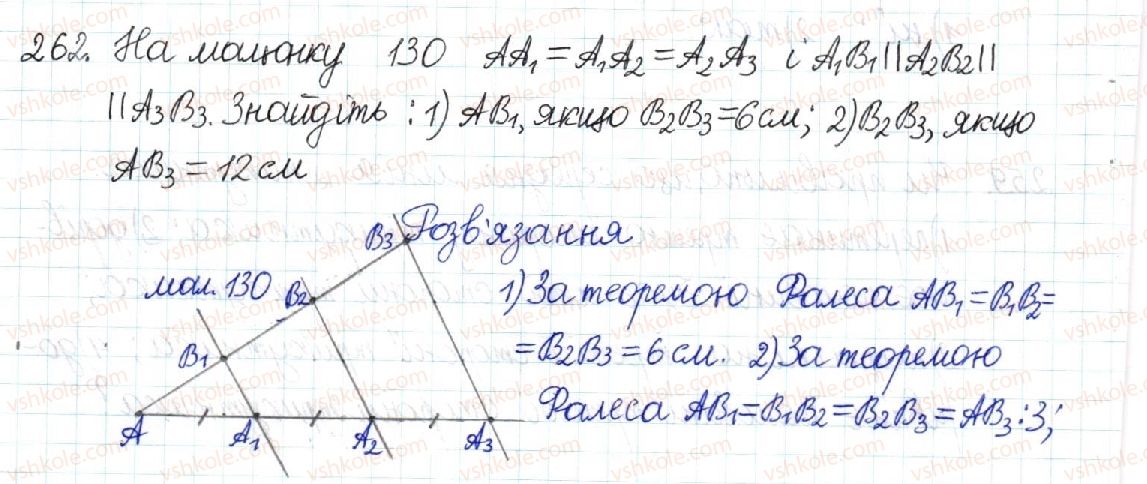 262. На малюнку 130 AA₁ = A₁A₂ = A₂A₃ і A₁B₁ || A₂B₂ ||
|| A₃B₃. Знайдіть : 1) AB₁, якщо B₂B₃ = 6 см; 2) B₂B₃, якщо
AB₃ = 12 см
Розв'язання
мал. 130
B₃
B₂
B₁
A
A₁
A₂
A₃
1) За теоремою Фалеса AB₁ = B₁B₂ =
= B₂B₃ = 6 см. 2) За теоремою
Фалеса AB₁ = B₁B₂ = B₂B₃ = AB₃ : 3;
vshkole.com